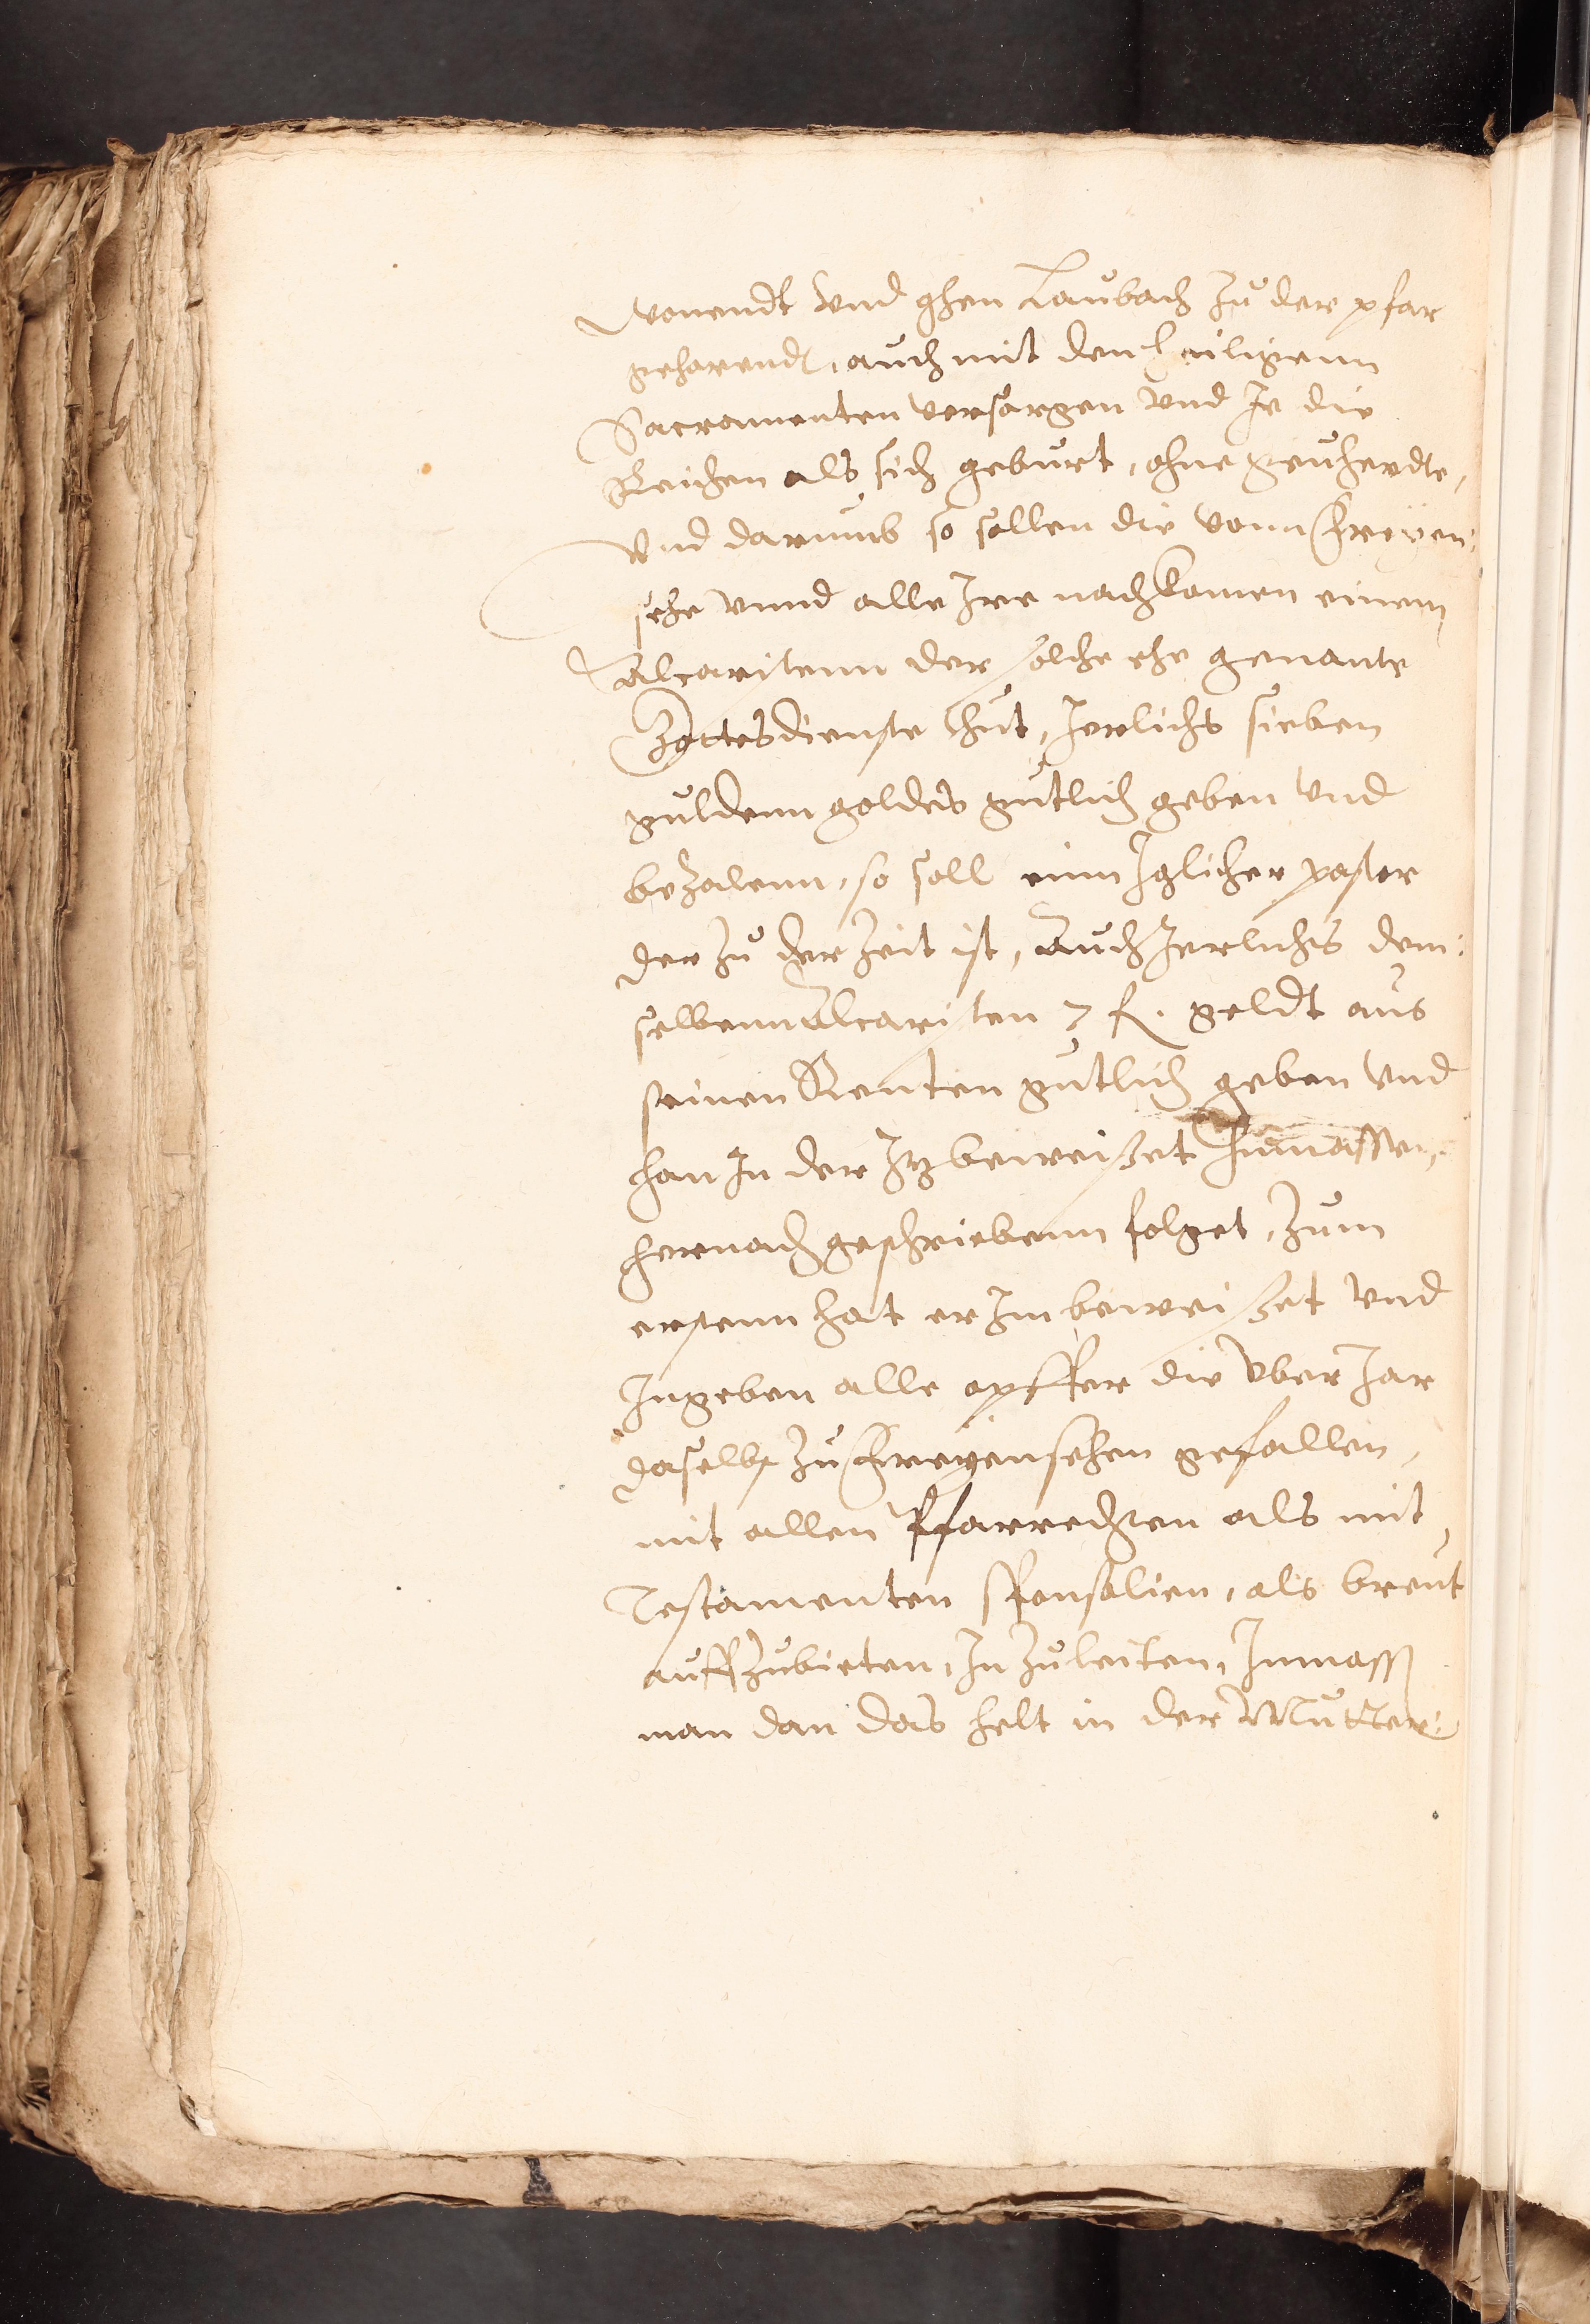 wonendt vnd ghen Laubach zu der pfar
gehorendt, auch mit den heiligenn
Sacramenten versorgen vnd Je die
Reichen als sich geburt, ohne geuherdte,
Vnd darumb so sollen die vonn Freyen:
sehe vnnd alle Ire nachkomen einem
Altaristenn der solche ehe genante
Gottesdienste thut, Jerlichs sieben
guldenn goldes gutlich geben vnd
bezalenn, so soll einn Iglicher pastor
der zu der Zeit ist, Auch Jerlichs dem:
selbenn Altaristen 7 fl. geldt aus
seinen Renten gutlich geben vnd
han In der Itz beweiszet Inmassen,
hernach geschriebenn folget, Zum
erstenn hat er Im beweiszet vnd
Ingeben alle opffer die vber Jar
daselbst zu Freyensehen gefallen,
mit allen Pfarrechten als mit
Testamenten Sponsalien, als breut
auffzubieten, In zu leiten, Inmass
man dan das helt in der Mutter: